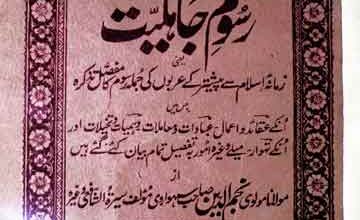 رسوم جاہلیت
یعنی
زمانۂ اسلام سے پیشتر کے عربوں کی جملہ رسوم کا مفصل تذکرہ
جس میں
اُنکے عقائد و اعمال عبادات و معاملات وہمیات و تخیلات اور
اُنکے تہوار میلے وغیرہ امور بہ تفصیل تمام بیان کئے گئے ہیں
از
مولانا مولوی نجم الدین صاحب سیوہاروی مؤلف سیرۃ الشافعی وغیرہ